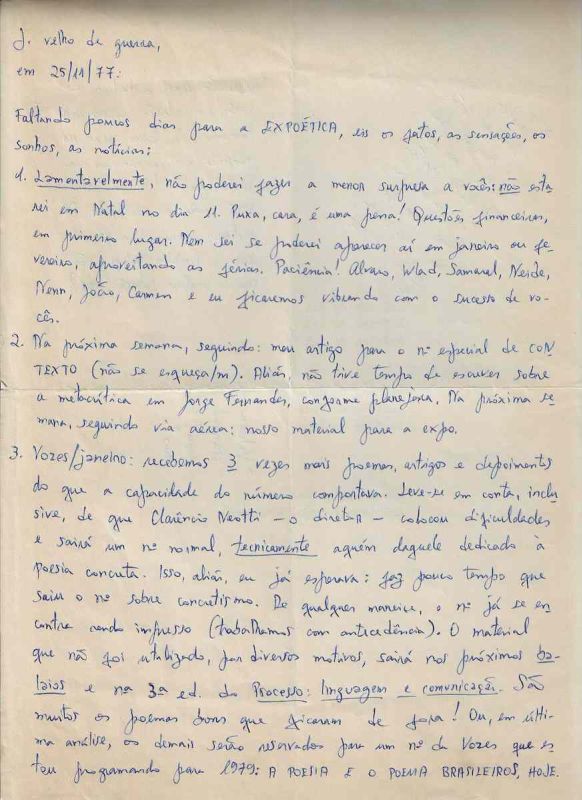 J. velho de guerra,
em 25/11/77:
Faltando poucos dias para a EXPOÉTICA, eis os fatos, as sensações, os
sonhos, as notícias:
1. Lamentavelmente, não poderei fazer a menor surpresa a vocês: não esta-
rei em Natal no dia 11. Puxa, cara, é uma pena! Questões financeiras,
em primeiro lugar. Nem sei se poderei aparecer aí em janeiro ou fe-
vereiro, aproveitando as férias. Paciência! Alvaro, Wlad, Samaral, Neide,
Nenn, João, Carmen e eu ficaremos vibrando com o sucesso de vo-
cês.
2. Na próxima semana, seguindo: meu artigo para o nº especial de CON
TEXTO (não se esqueça/m). Aliás, não tive tempo de escrever sobre
a metacrítica em Jorge Fernandes, conforme planejara. Na próxima se
mana, seguindo via aérea: nosso material para a expo.
3. Vozes/janeiro: recebemos 3 vezes mais poemas, artigos e depoimentos
do que a capacidade do número comportava. Leve-se em conta, inclu
sive, de que Clarêncio Neotti – o diretor – colocou dificuldades
e sairá um nº normal, tecnicamente aquém daquele dedicado à
poesia concreta. Isso, aliás, eu já esperava: faz pouco tempo que
saiu o nº sobre concretismo. De qualquer maneira, o nº já se en
contra sendo impresso (trabalhamos com antecedência). O material
que não foi utilizado, por diversos motivos, sairá nos próximos ba-
laios e na 3ª ed. do Processo: linguagem e comunicação. São
muitos os poemas bons que ficaram de fora! Ou, em últi-
ma análise, os demais serão reservados para um nº da Vozes que es
tou programando para 1979: A POESIA E O POEMA BRASILEIROS, HOJE.